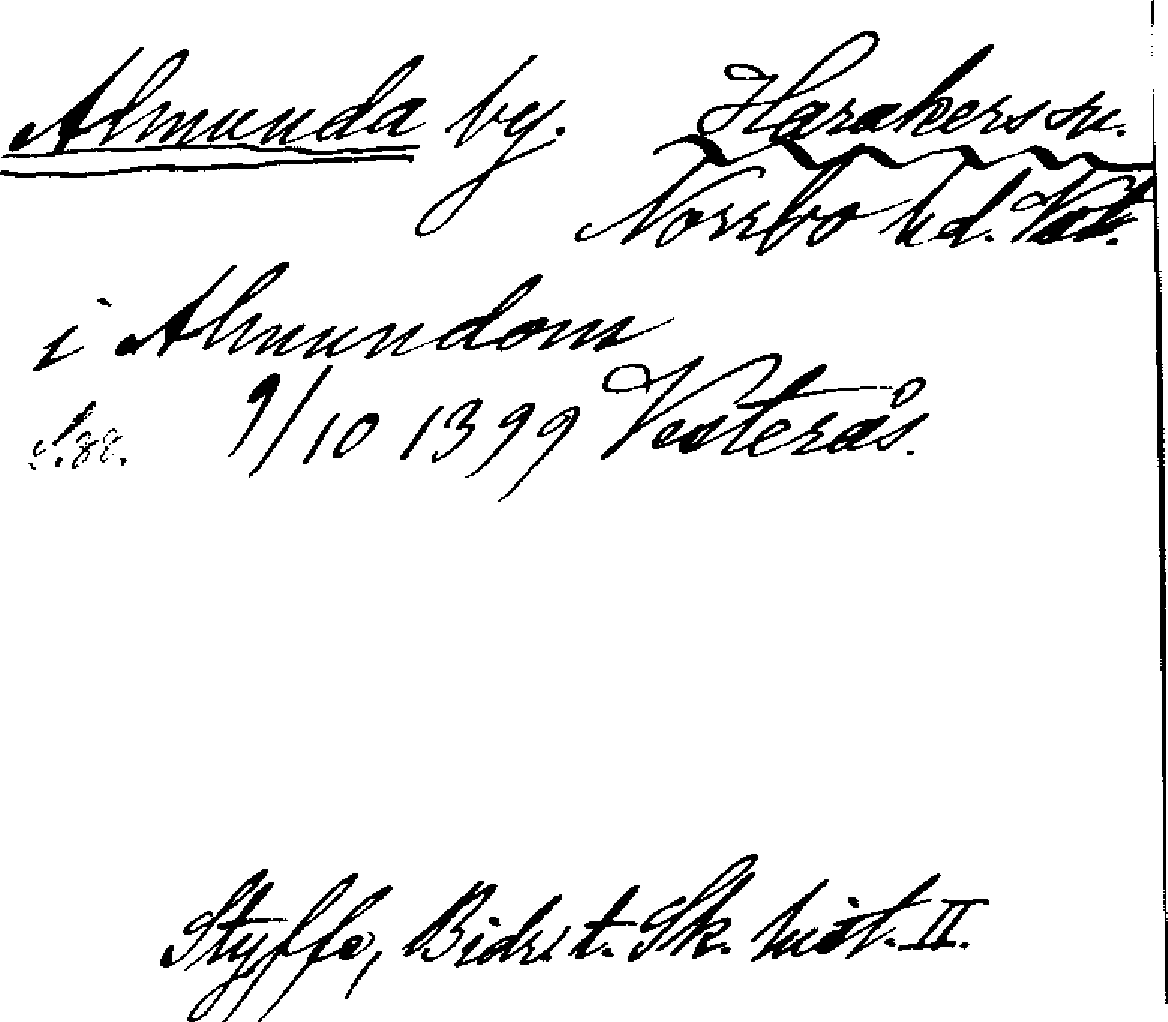 Almunda by. Harakers sn.
Norrbo hd. Vstm.
i Almundom
S. 88. 9/10 1399 Vesterås.
Styffe, Bidr. t. Sk. hist. II.